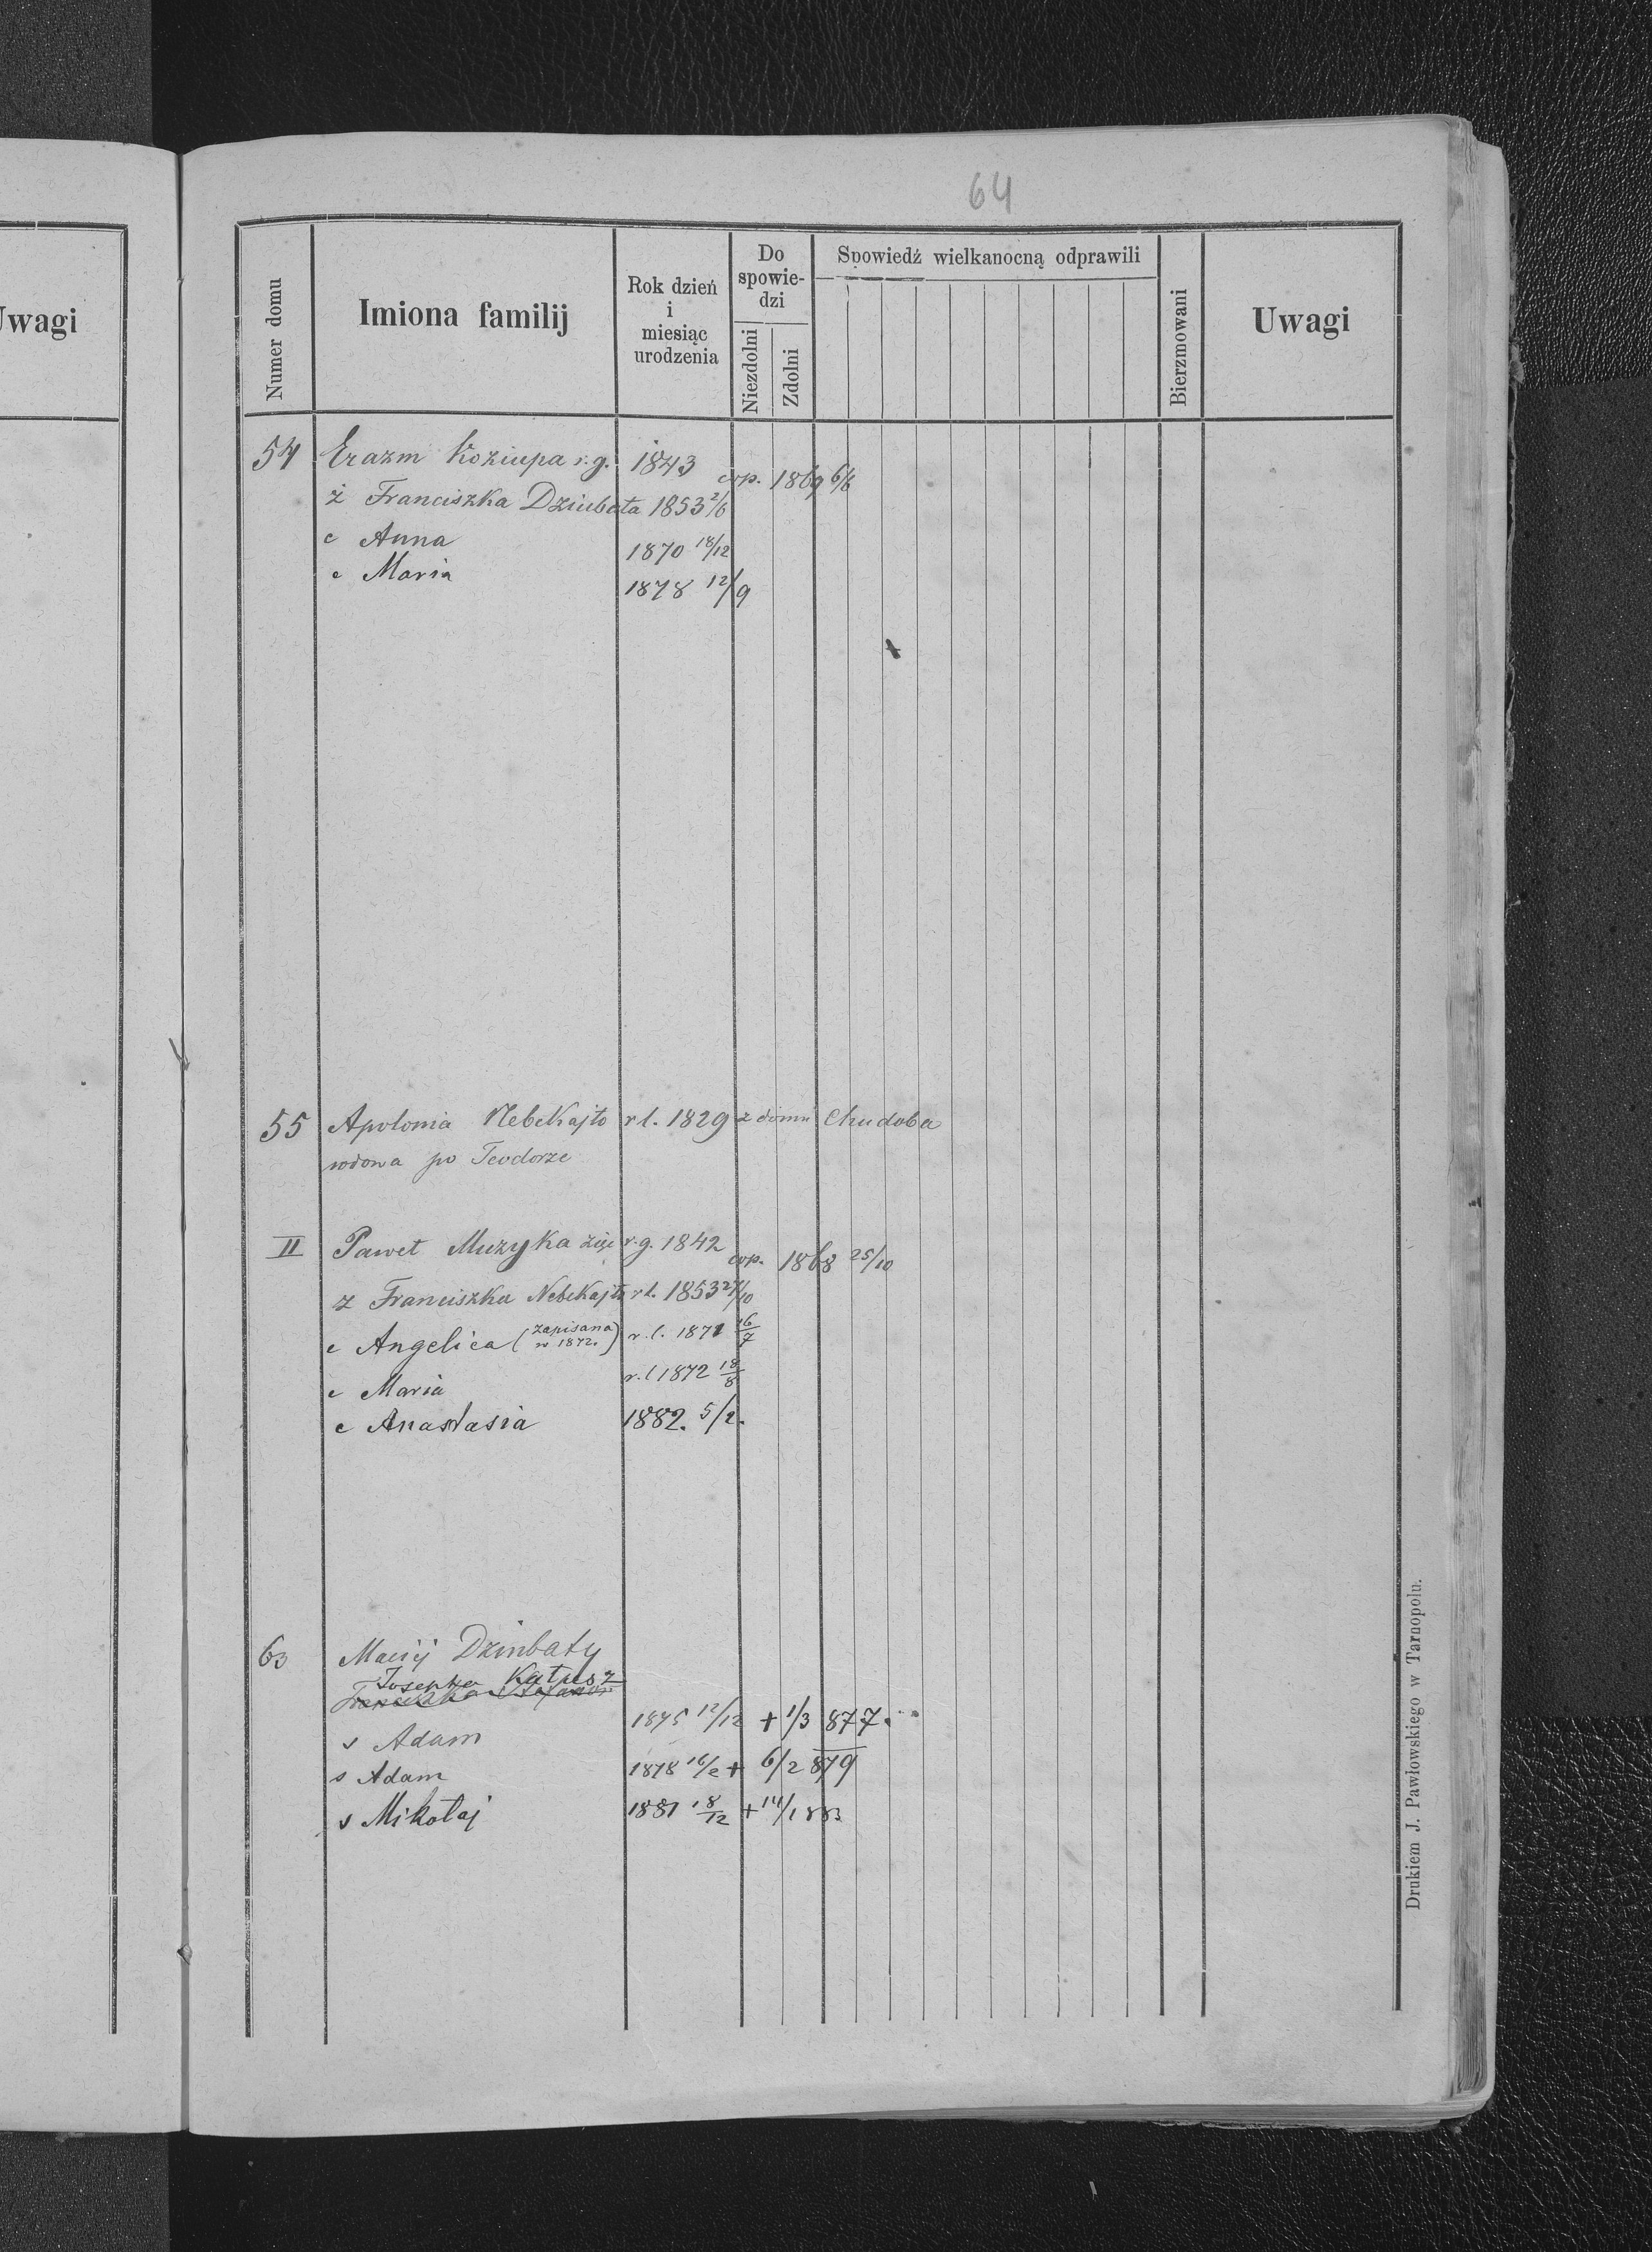 64
Uwagi
Numer domu
Imiona familij
Rok dzień
i
miesiąc
urodzenia
Do
spowie-
dzi
Niezdolni
Zdolni
Spowiedź wielkanocną odprawili
Bierzmowani
Uwagi
54 Erazm Koziupa r.g. 1843 cop. 1869 6/6
ż Franciszka Dziubata 1853 2/6
c Anna 1870 18/12
c Maria 1878 12/9
55 Apolonia Nebekajło r l. 1829 z domu Chudoba
wdowa po Teodorze
II Paweł Muzyka zięć r.g. 1842 cop. 1868 25/10
ż Franciszka Nebekajło r l. 1853 27/10
c Angelica (zapisana w 1872.) r.l. 1871 16/7
c Maria r.l 1872 18/8
c Anastasia 1882. 5/2.
63 Maciij Dziubaty
Josepha Katpesz
Franciszka
s Adam 1875 12/12 + 1/3 877.
s Adam 1878 16/2 + 6/2 879
s Mikołaj 1881 18/12 + 14/1 883
Drukiem J. Pawłowskiego w Tarnopolu.